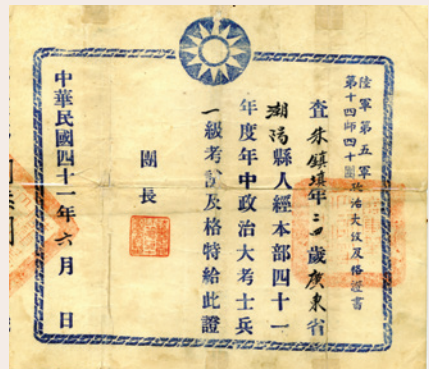 陸軍第五軍
第十四師四十團政治大考及格證書
查朱鎮填年二四歲廣東省
潮陽縣人經本部四十一
年度年中政治大考士兵
一級考試及格特給此證
團長
中華民國四十一年六月 日